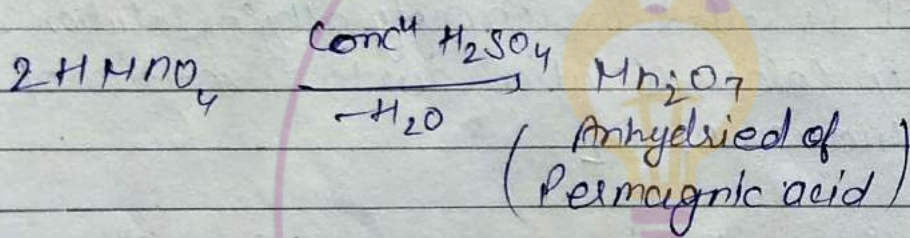 2HMnO4 Conc" H2SO4 → Mn2O7
-H2O
( Anhydried of
Permagnic acid )